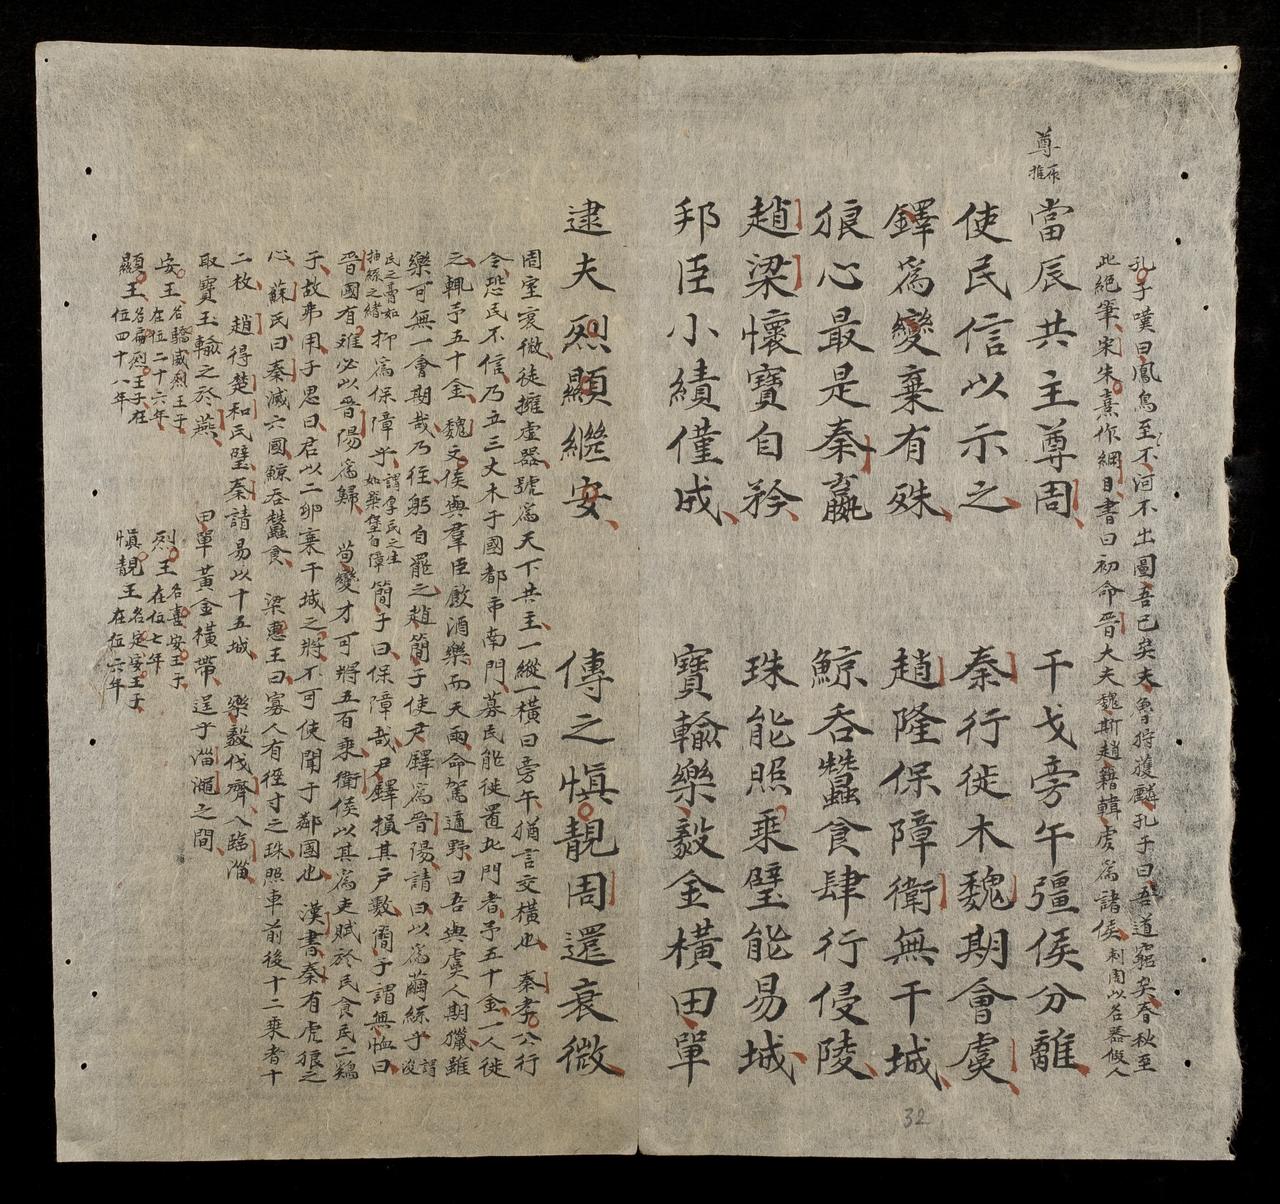 孔子嘆曰鳳鳥至不河不出圖吾已矣夫魯狩獲麟孔子曰吾道窮矣春秋至
此絕筆宋朱熹作綱目書曰初命晉大夫魏斯趙籍韓虔為諸侯刺周以名器假人
尊一作推
當辰共主尊周 干戈旁午彊侯分離
使民信以示之 秦行徙木魏期會虞
鐸為變棄有殊 趙隆保障衛無干城
狼心最是秦嬴 鯨吞蠶食肆行侵陵
趙梁懷寶自矜 珠能照乘璧能易城
邦臣小績僅成 寶輸樂毅金橫田單
逮夫烈顯繼安 傳之慎靚周還衰微
周室衰微徒擁虛器號為天下共主一縱一橫曰旁午猶言交橫也 秦孝公行
令恐民不信乃立三丈木于國都市南門募民能徙置北門者予五十金一人徙
之輒予五十金 魏文侯與羣臣飲酒樂而天雨命駕適野曰吾與虞人期獵雖
樂可無一會期哉乃往躬自罷之趙簡子使尹鐸為晉陽請曰以為繭絲乎謂浚
民之膏如抽絲之緒抑為保障乎謂厚民之生如築堡自障簡子曰保障哉尹鐸損其戶數簡子謂無恤曰
晉國有難必以晉陽為歸 荀變才可將五百乘衛侯以其為吏賦於民食民二鷄
子故弗用子思曰君以二卵棄干城之將不可使聞于鄰國也 漢書秦有虎狼之
心 蘇氏曰秦滅六國鯨吞蠶食 梁惠王曰寡人有徑寸之珠照車前後十二乘者十
二枚 趙得楚和氏璧秦請易以十五城 樂毅伐齊入臨淄
取寶玉輸之於燕 田單黃金橫帶逞乎淄澠之間
安王名驕威烈王子在位二十六年 烈王名喜安王子在位七年
顯王名扁烈王子在位四十八年 慎靚王名定顯王子在位六年
32